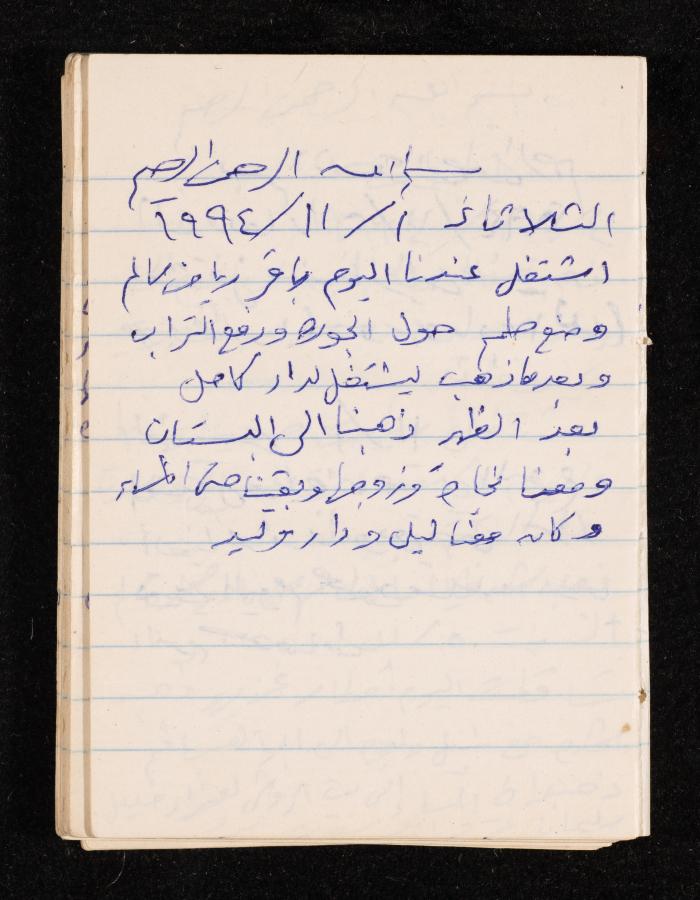 بسم الله الرحمن الرحيم
الثلاثاء ١/ ١١/ ١٩٩٤
اشتغل عندنا اليوم باقر رياض سالم
وضع حول الجورة ورفع التراب
وبعدها ذهب ليشتغل لدار كامل
بعد الظهر ذهبنا الى البستان
ومعنا نجاح وزوجها وبقينا حتى المساء
وكان معنا ليلى ودار وليد